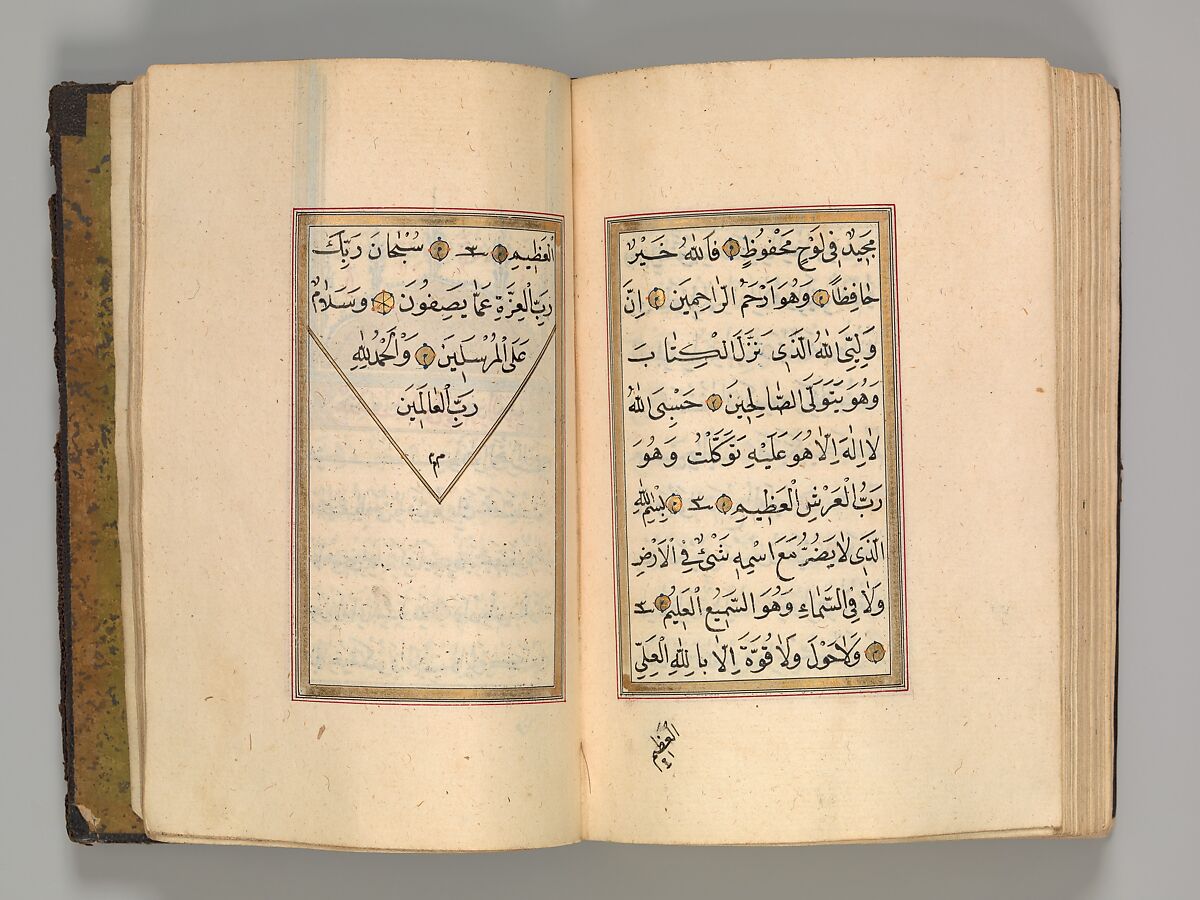 مَجِيدٌ فِي لَوْحٍ مَحْفُوظٍ فَاللّٰهُ خَيْرٌ
حَافِظًا وَهُوَ اَرْحَمُ الرَّاحِمِينَ اِنَّ
وَلِيِّيَ اللّٰهُ الَّذِي نَزَّلَ الْكِتَابَ
وَهُوَ يَتَوَلَّى الصَّالِحِينَ حَسْبِيَ اللّٰهُ
لَا اِلٰهَ اِلَّا هُوَ عَلَيْهِ تَوَكَّلْتُ وَهُوَ
رَبُّ الْعَرْشِ الْعَظِيمِ ٣ بِسْمِ اللّٰهِ
الَّذِي لَا يَضُرُّ مَعَ اسْمِهِ شَيْءٌ فِي الْاَرْضِ
وَلَا فِي السَّمَاءِ وَهُوَ السَّمِيعُ الْعَلِيمُ ٣
وَلَا حَوْلَ وَلَا قُوَّةَ اِلَّا بِاللّٰهِ الْعَلِيِّ
الْعَظِيمِ
الْعَظِيمِ ٣ سُبْحَانَ رَبِّكَ
رَبِّ الْعِزَّةِ عَمَّا يَصِفُونَ وَسَلَامٌ
عَلَى الْمُرْسَلِينَ وَالْحَمْدُ لِلّٰهِ
رَبِّ الْعَالَمِينَ